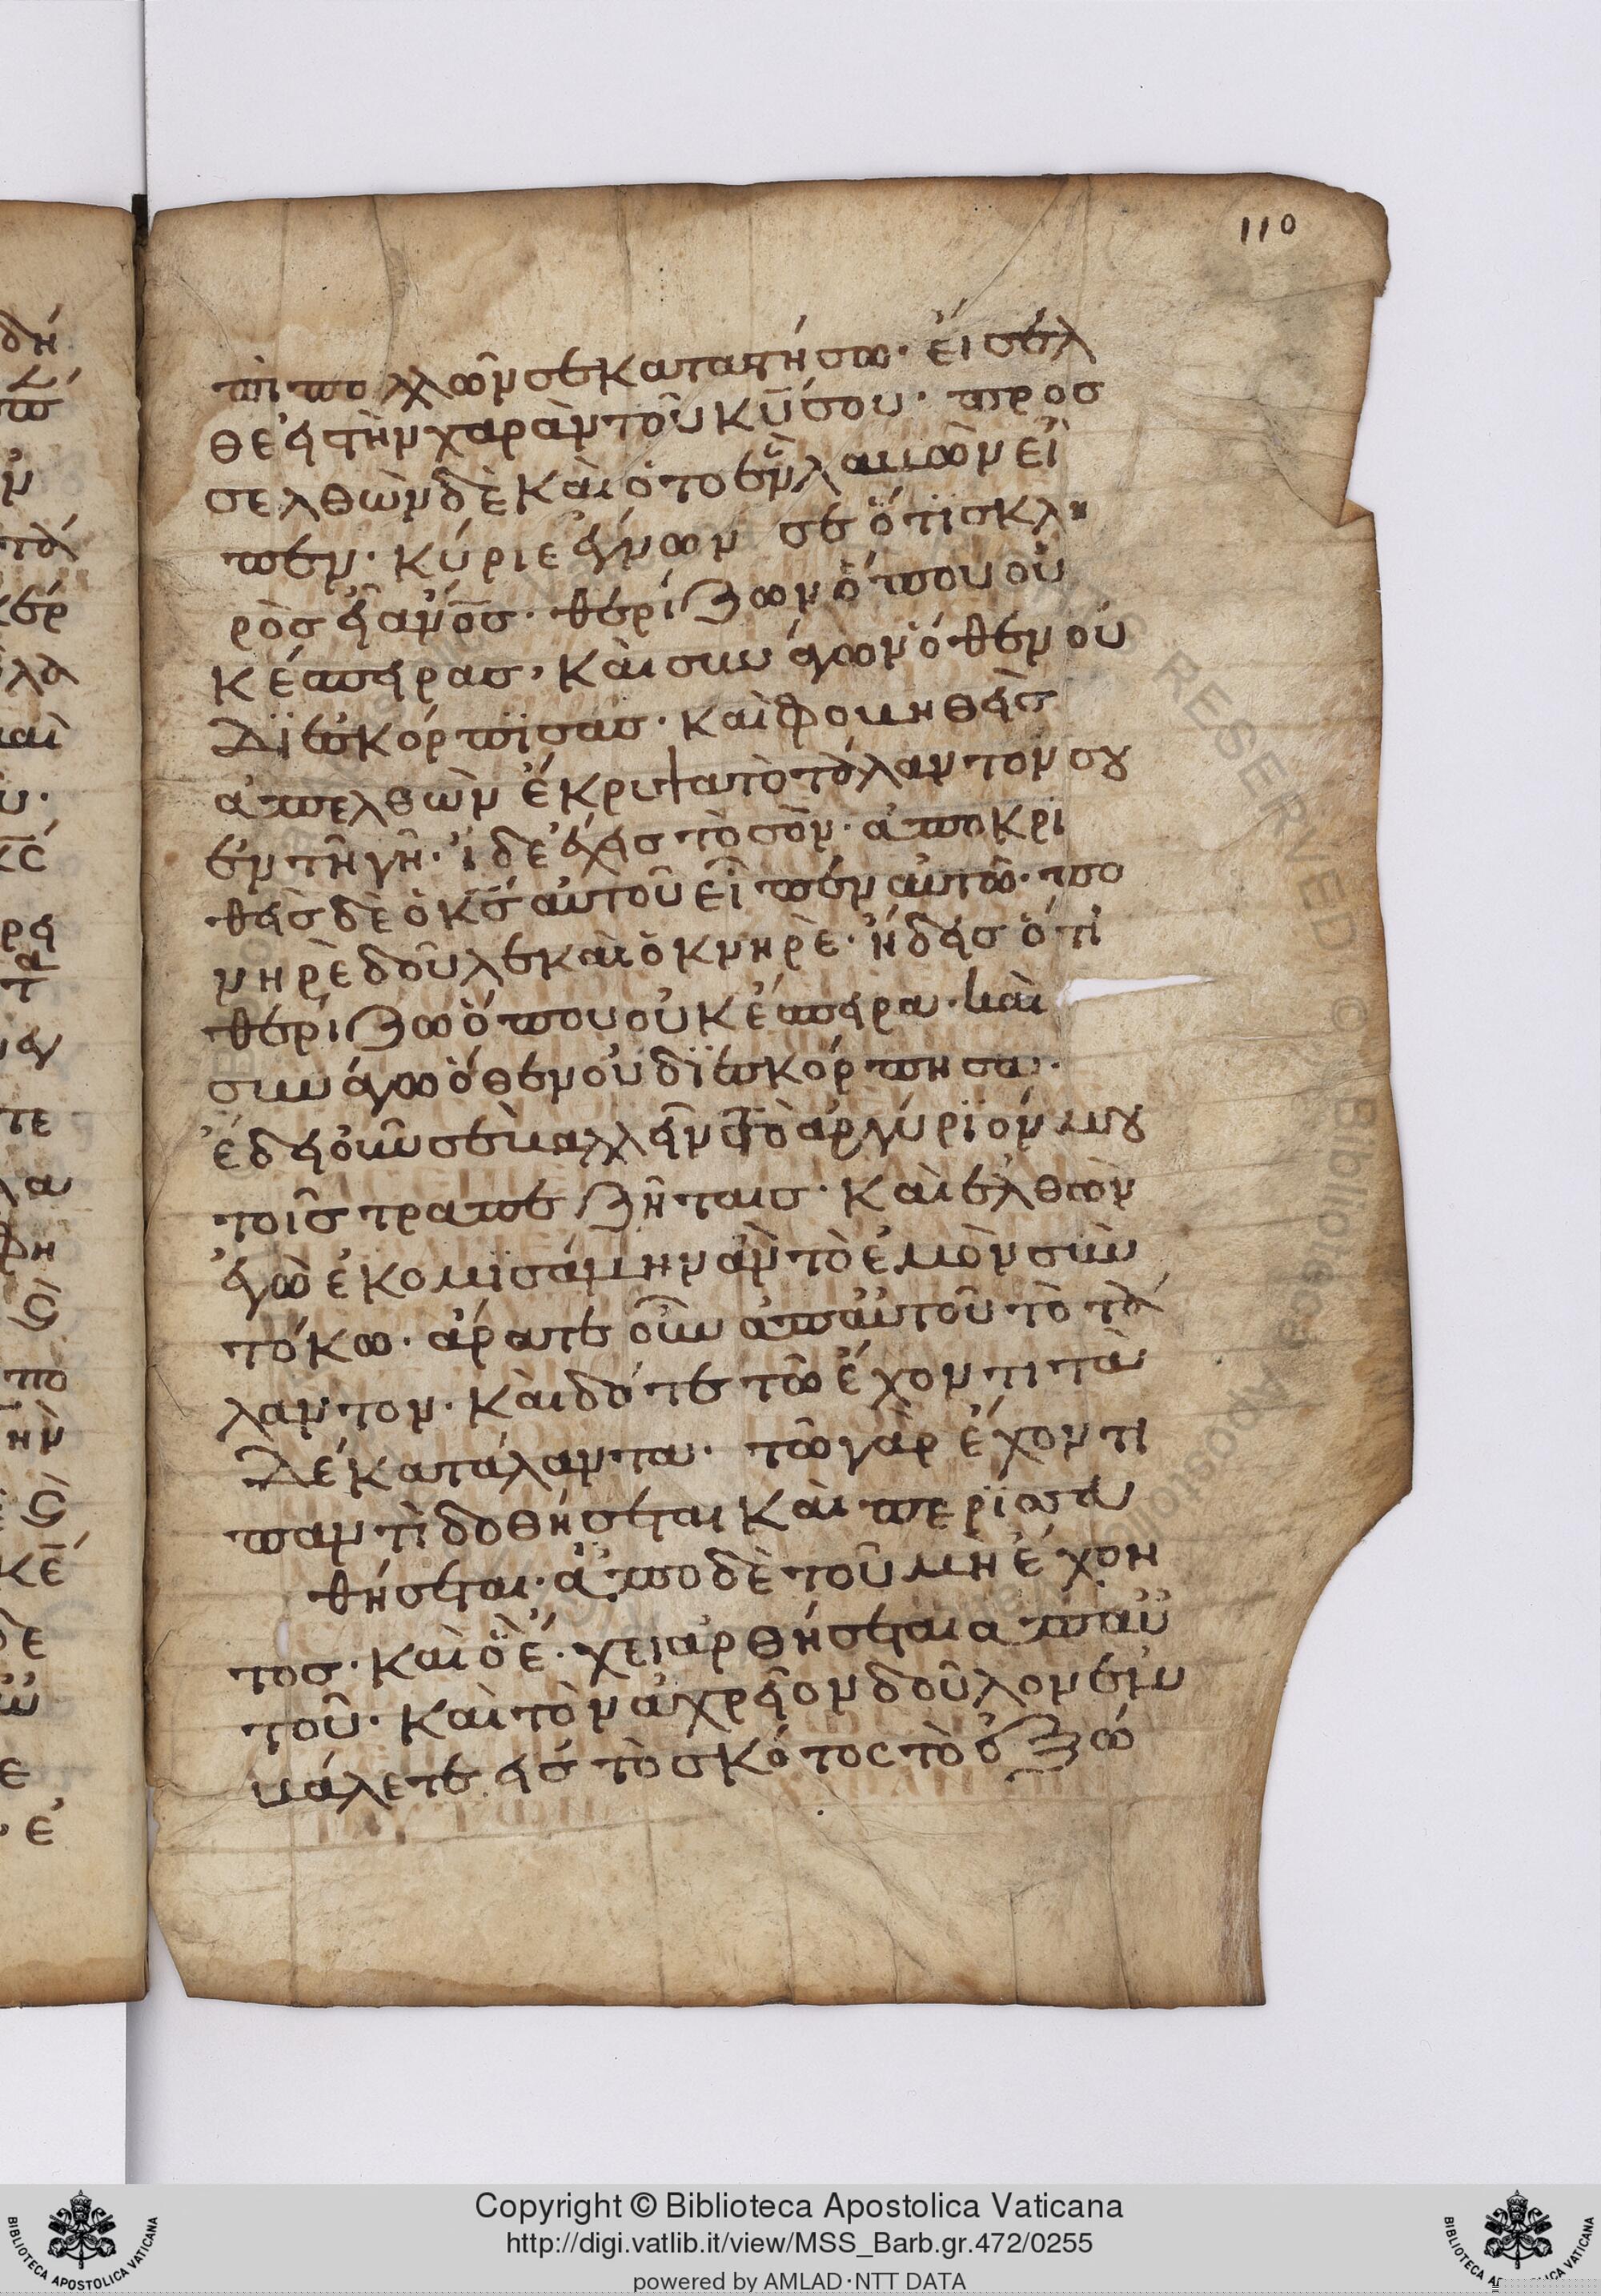 110
πὶ πολλῶν σε καταστήσω· εἴσελ
θε εἰς τὴν χαρὰν τοῦ κ̅υ̅ σου· προσ
σελθὼν δὲ καὶ ὁ τὸ ἓν λαβὼν εἶ
πεν· κύριε ἔγνων σε ὅτι σκλη
ρὸς εἶ ἄνο̅σ̅· θερίζων ὅπου οὐ
κ ἔσπειρας, καὶ συνάγων ὅθεν οὐ
διεσκόρπισας· καὶ φοβηθεὶς
ἀπελθὼν ἔκρυψα τὸ τάλαντόν σου
ἐν τῇ γῇ· ἴδε ἔχεις τὸ σόν· ἀποκρι
θεὶς δὲ ὁ κ̅ς̅ αὐτοῦ εἶπεν αὐτῶ· πο
νηρὲ δοῦλε καὶ ὀκνηρὲ· ἤδεις ὅτι
θερίζω ὅπου οὐκ ἔσπειρα· καὶ
συνάγω ὅθεν οὐ διεσκόρπησα·
ἔδει οὖν σε βαλλεῖν τὸ ἀργύριόν μου
τοῖς τραπεζήταις· καὶ ἐλθὼν
ἐγὼ ἐκομισάμην ἂν τὸ ἐμὸν σὺν
τόκω· ἄρατε οὖν ἀπ' αὐτοῦ τὸ τά
λαντον· καὶ δότε τῶ ἔχοντι τὰ
δέκα τάλαντα· τῶ γὰρ ἔχοντι
παντὶ δοθήσεται καὶ περισσευ
θήσεται· ἀπὸ δὲ τοῦ μὴ ἔχον
τος· καὶ ὃ ἔ·χει ἀρθήσεται ἀπ' αὐ
τοῦ· καὶ τὸν ἀχρεῖον δοῦλον ἐκ
βάλετε εἰς τὸ σκότος τὸ ἐξώ
Copyright © Biblioteca Apostolica Vaticana
http://digi.vatlib.it/view/MSS_Barb.gr.472/0255
powered by AMLAD·NTT DATA
BIBLIOTECA APOSTOLICA VATICANA
BIBLIOTECA APOSTOLICA VATICANA